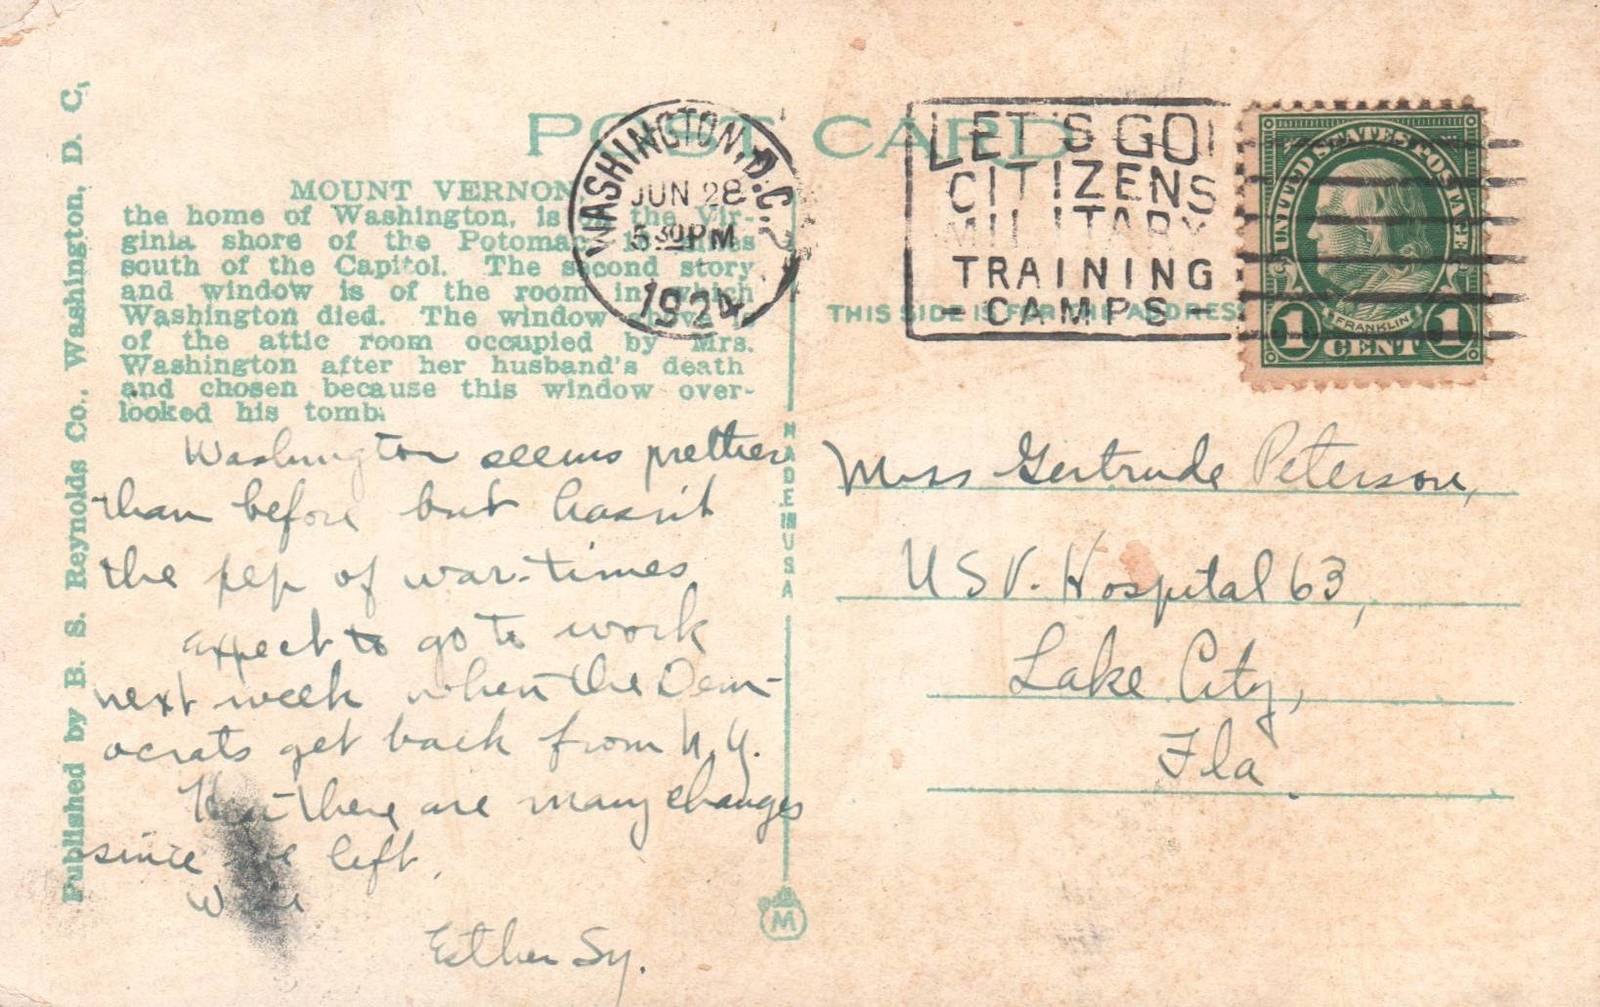 POST CARD
MOUNT VERNON
the home of Washington, is on the Vir-
ginia shore of the Potomac 16 miles
south of the Capitol. The second story
and window is of the room in which
Washington died. The window above is
of the attic room occupied by Mrs.
Washington after her husband's death
and chosen because this window over-
looked his tomb.
Published by B. S. Reynolds Co., Washington, D. C.
WASHINGTON, D.C.
JUN 28
5 30 PM
1924
LET'S GO!
CITIZENS
MILITARY
TRAINING
- CAMPS -
UNITED STATES POSTAGE
FRANKLIN
1 CENT 1
THIS SIDE IS FOR THE ADDRESS
MADE IN USA
Washington seems prettier
than before but hasn't
the pep of war-times
expect to go to work
next week when the Dem-
ocrats get back from N.Y.
there are many changes
since left.
Esther Sy.
M
Miss Gertrude Peterson,
USV. Hospital 63,
Lake City,
Fla.